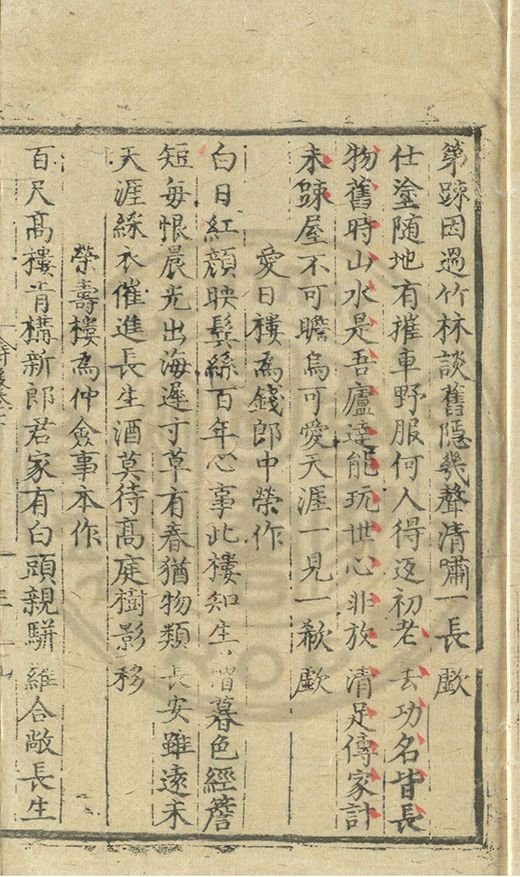 第踈因過竹林談舊隱幾聲清嘯一長歔
仕塗隨地有摧車野服何人得返初老去功名皆長
物舊時山水是吾廬達能玩世心非放清足傳家計
未踈屋不可瞻烏可愛天涯一見一欷歔
愛日樓為錢郎中榮作
白日紅顔映鬓絲百年心事此樓知生憎暮色經簷
短每恨晨光出海遲寸草有春猶物類長安雖遠未
天涯綵衣催進長生酒莫待高庭樹影移
榮壽樓為仲僉事本作
百尺高樓肯構新郎君家有白頭親駢羅合敞長生